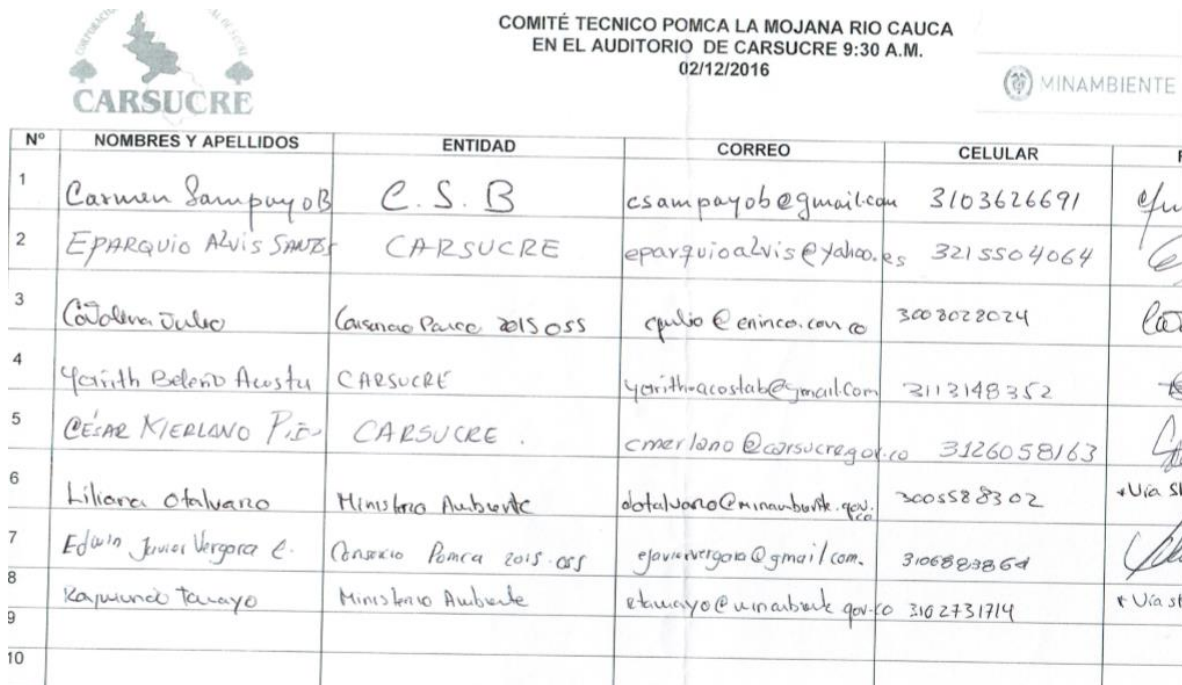 COMITÉ TECNICO POMCA LA MOJANA RIO CAUCA
EN EL AUDITORIO DE CARSUCRE 9:30 A.M.
02/12/2016
CARSUCRE
MINAMBIENTE
Nº NOMBRES Y APELLIDOS ENTIDAD CORREO CELULAR
1 Carmen Sampayo B C.S.B csampayob@gmail.com 3103626691
2 EPARQUIO ALVIS SANTOS CARSUCRE eparquioalvis@yahoo.es 3215504064
3 Catalina Julio 2015 055 cjulio@eninco.com.co 3008028024
4 Yarith Beleño Acosta CARSUCRE yarith.acostab@gmail.com 3113148352
5 CÉSAR MERLANO CARSUCRE. cmerlano@carsucre.gov.co 3126058163
6 Liliana Otalvaro Ministerio Ambiente dotalvaro@minambiente.gov.co 3005588302 *Vía
7 Edwin Javier Vergara C. Consorcio Pomca 2015.055 ejaviervergara@gmail.com. 3106883864
8 Raimundo Tamayo Ministerio Ambiente rtamayo@minambiente.gov.co 3102731714 *Vía
9
10